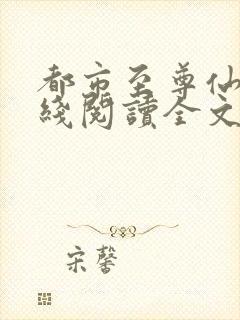 都市至尊仙
綫閱讀全文
宋馨